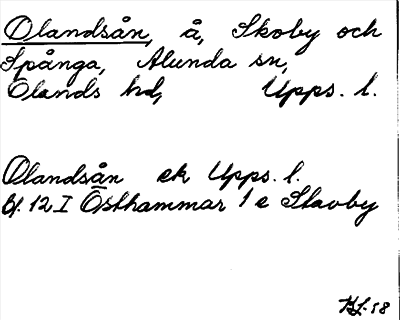 Olandsån, å, Skoby och
Spånga, Alunda sn,
Olands hd, Upps. l.
Olandsån ek Upps. l.
Bl. 12 I Östhammar 1 e Stavby
HS. 58